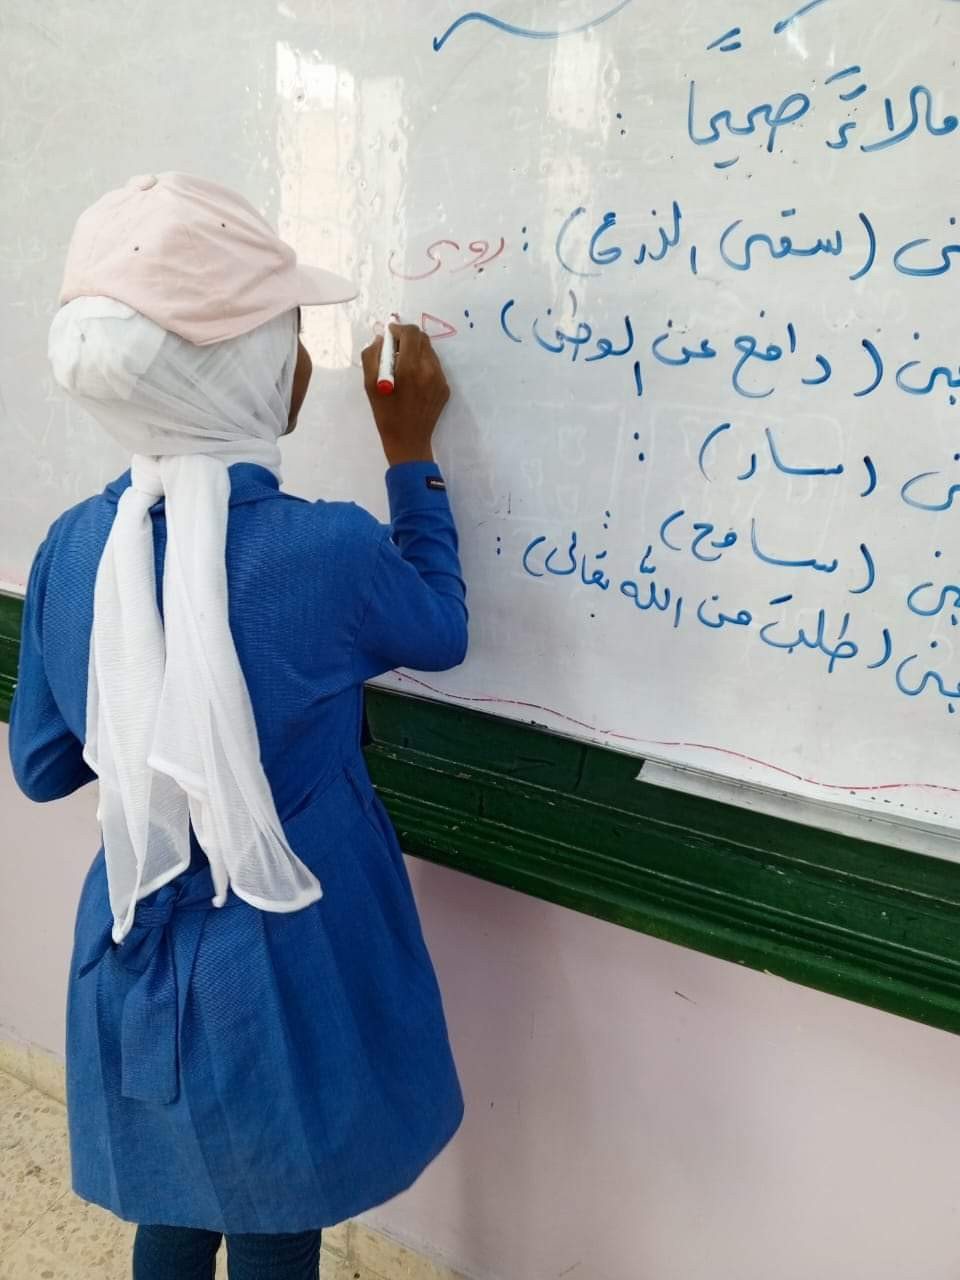 ملاءً صحيحًا :
(سقى الزرع) : روى
(دافع عن الوطن) :
(ساد) :
(سامح) :
(طلبَ من اللّه تعالى) :